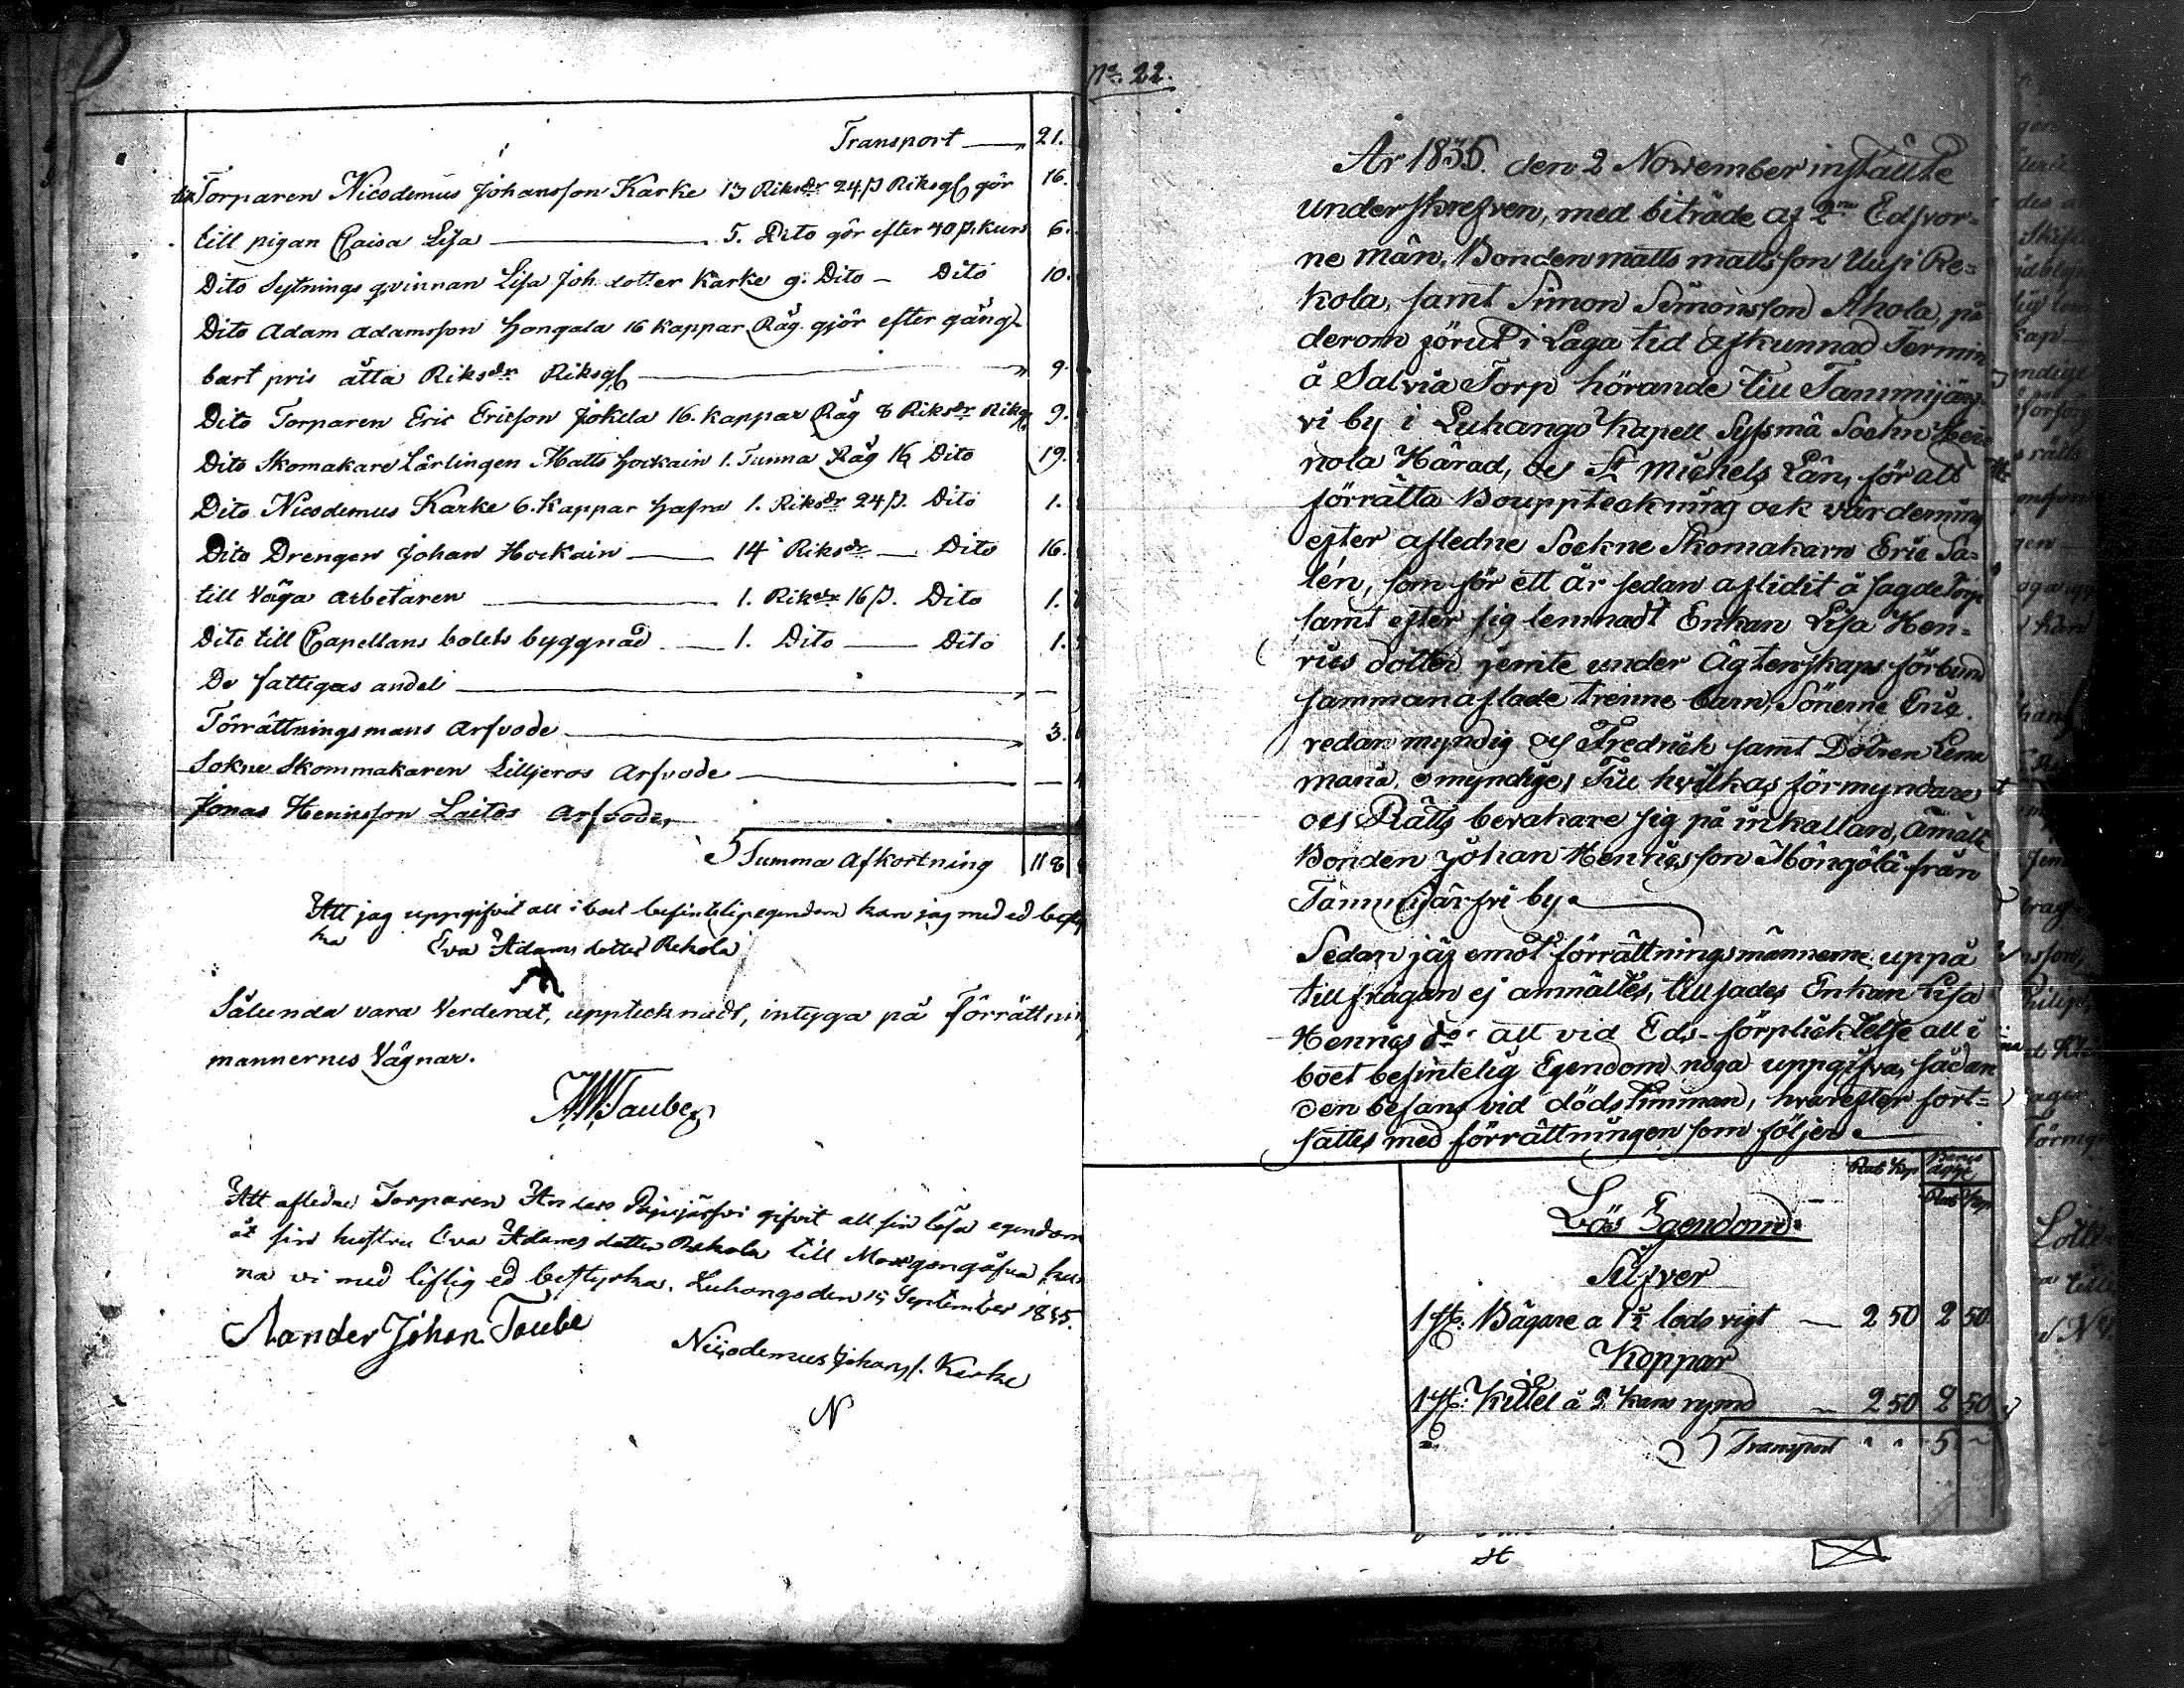 Transport 21.
till Torparen Nicodemus Johansson Karke 13 Riksdr 24 ß Riksgs gör 16.
till pigan Caisa Lisa 5. Dito gör efter 40 ß. kurs 6.
Dito Sytnings qvinnan Lisa Joh. dotter Karke 9. Dito – Dito 10.
Dito Adam Adamsson Hongala 16 kappar Råg. gjör efter gäng-
bart pris åtta Riksdr Riksgs 9.
Dito Torparen Eric Ericsson Jokela 16. kappar Råg 8 Riksdr Riksgs 9.
Dito Skomakare Lärlingen Matts Hockain 1. Tunna Råg 16 Dito 19.
Dito Nicodemus Karke 6. kappar hafra 1. Riksdr 24 ß. Dito 1.
Dito Drengen Johan Hockain 14 Riksdr Dito 16.
till Väga arbetaren 1. Riksdr 16 ß. Dito 1.
Dito till Capellans bolets byggnad 1. Dito Dito 1.
De fattigas andel —
Förrättningsmans Arfvode 3.
Sokne Skommakaren Lilljeros Arfvode —
Jonas Heninsson Laitos Arfvode
Summa Afkortning 118
Att jag uppgifvit all i boet befintelig egendom kan jag med ed besty
ka Eva Adams dotter Rekola
Sålunda vara Verderat, uppteknadt, intyga på Förrättnings
mannernes Vägnar.
Taube
Att afledne Torparen Anders Päijäsjärfvi gifvit all sin lösa egendom
åt sin hustru Eva Adams dotter Rekola till Morgongåfva kun
na vi med liflig ed bestyrka. Luhango den 15 September 1835.
Aander Johan Taube
Nicodemus Johans s. Karke
N
No. 22.
År 1835. den 2 November inställte
underskrefven, med biträde af 2ne Edsvor-
ne män, Bonden matts mattsson Uusi Re-
kola, samt Simon Simonsson Ahola, på
derom förut i Laga tid afkunnad Termin
å Salvia Torp hörande till Tammijär-
vi by i Luhango Kapell Syssmä Sockn Hei
nola Härad, oc St Michels Län, för att
förrätta Bouppteckning ock värdering
efter afledne Sockne Skomakarn Eric Sa-
lén, som för ett år sedan aflidit å sagde torp
samt efter sig lemnadt Enkan Lisa Hen-
rics dotter jemte under Ägtenskaps förbund
sammanaflade trenne barn, Sönerne Eric
redan myndig oc Fredrich samt Dottren Lena
maria, omyndige, Till hvilkas förmyndare
oc Rätts bevakare sig på inkallan, Anmälte
Bonden Johan Henricsson Hongola från
Tammijärfvi by.
Sedan jäf emot förrättningsmännerne uppå
tillfrågan ej anmältes, tillsades Enkan Lisa
Henrics dr att vid Eds-förplicktelse all i
boet befintelig Egendom noga uppgifva, sådan
den befans vid dödstimman, hvarefter fort-
sattes med förrättningen som följer.
Rub Kop
Rub Kop
Lös Egendom
Silfver
1 st. Bägare a 1½ lods vigt 2 50 2 50
Koppar
1 st. Kittel à 2 kans rymd 2 50 2 50
Transport " " 5 –